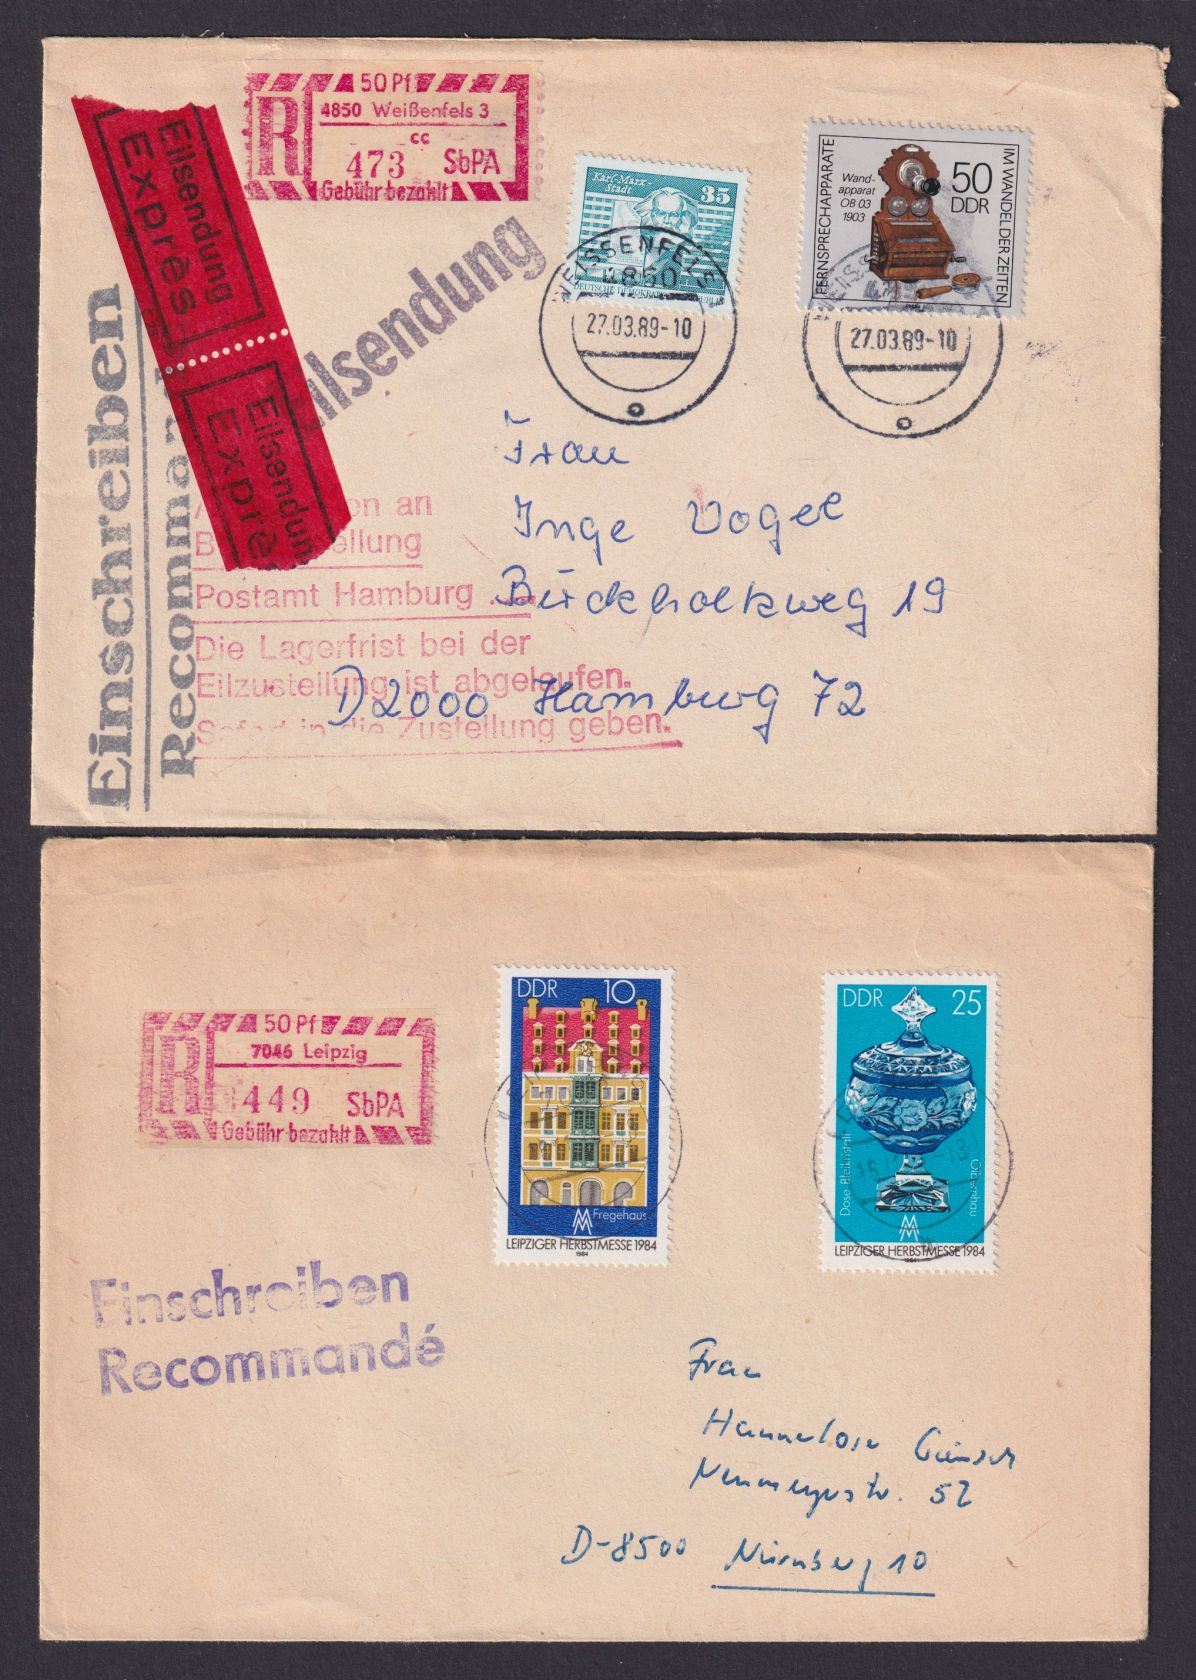 50 Pf
4850 Weißenfels 3
cc
R 473 SbPA
Gebühr bezahlt
Eilsendung
Exprès
Eilsendung
Exprè
Eilsendung
Einschreiben
Recommand
Karl-Marx-
Stadt
35
DEUTSCHE DEMOKRA
WEISSENFELS
4850
27.03.89-10
FERNSPRECHAPPARATE
IM WANDEL DER ZEITEN
Wand-
apparat
OB 03
1903
50
DDR
27.03.89-10
on an
ellung
Postamt Hamburg
Die Lagerfrist bei der
Eilzustellung ist abgelaufen.
Sofort in die Zustellung geben.
Frau
Inge Vogel
Bürckholtzweg 19
D2000 Hamburg 72
50 Pf
7046 Leipzig
R 449 SbPA
Gebühr bezahlt
DDR 10
MM Fregehaus
LEIPZIGER HERBSTMESSE 1984
1984
DDR 25
Dose Bleikristall
Olbernhau
MM
LEIPZIGER HERBSTMESSE 1984
1984
Einschreiben
Recommandé
Frau
Hannelose
52
D-8500 Nürnberg 10